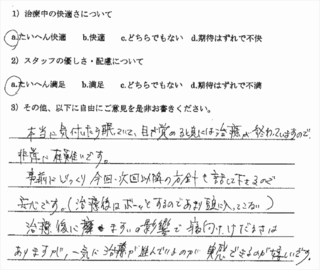 1）治療中の快適さについて
a.たいへん快適　b.快適　c.どちらでもない　d.期待はずれで不快
2）スタッフの優しさ・配慮について
a.たいへん満足　b.満足　c.どちらでもない　d.期待はずれで不満
3）その他、以下に自由にご意見を是非お書きください。
本当に気付いたら眠っていて、目が覚める頃には治療が終わっていますので、
非常に有難いです。
事前にじっくり今回・次回以降の方針を話して下さるので
安心です。（治療後はボーっとするのであまり頭に入ってこない）
治療後に麻ますいの影響で寝付けだるさは
ありますが、一気に治療が進んでいるのが実感できるのが嬉しいです。